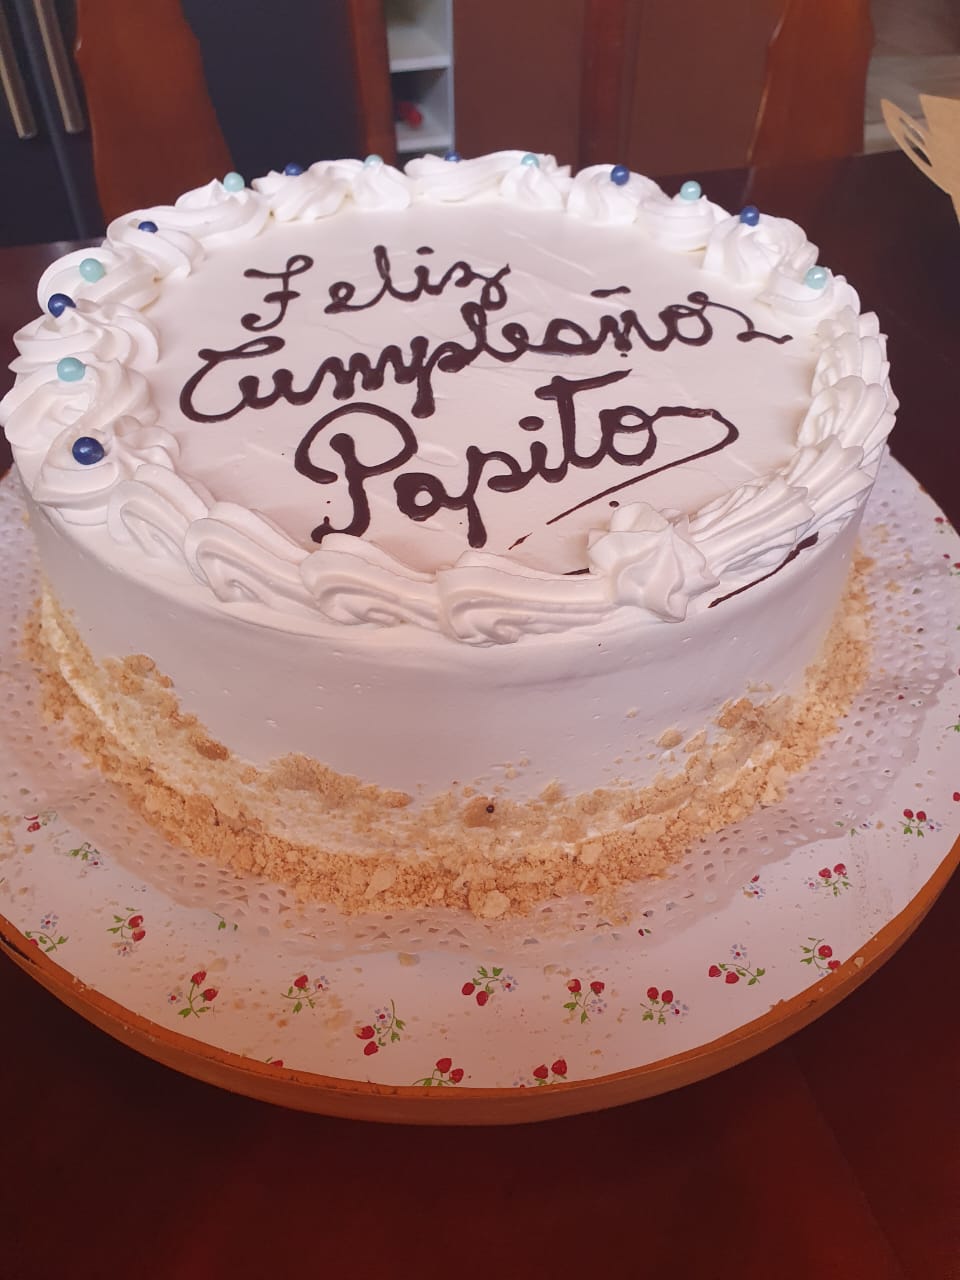 Feliz
Cumpleaños
Papito